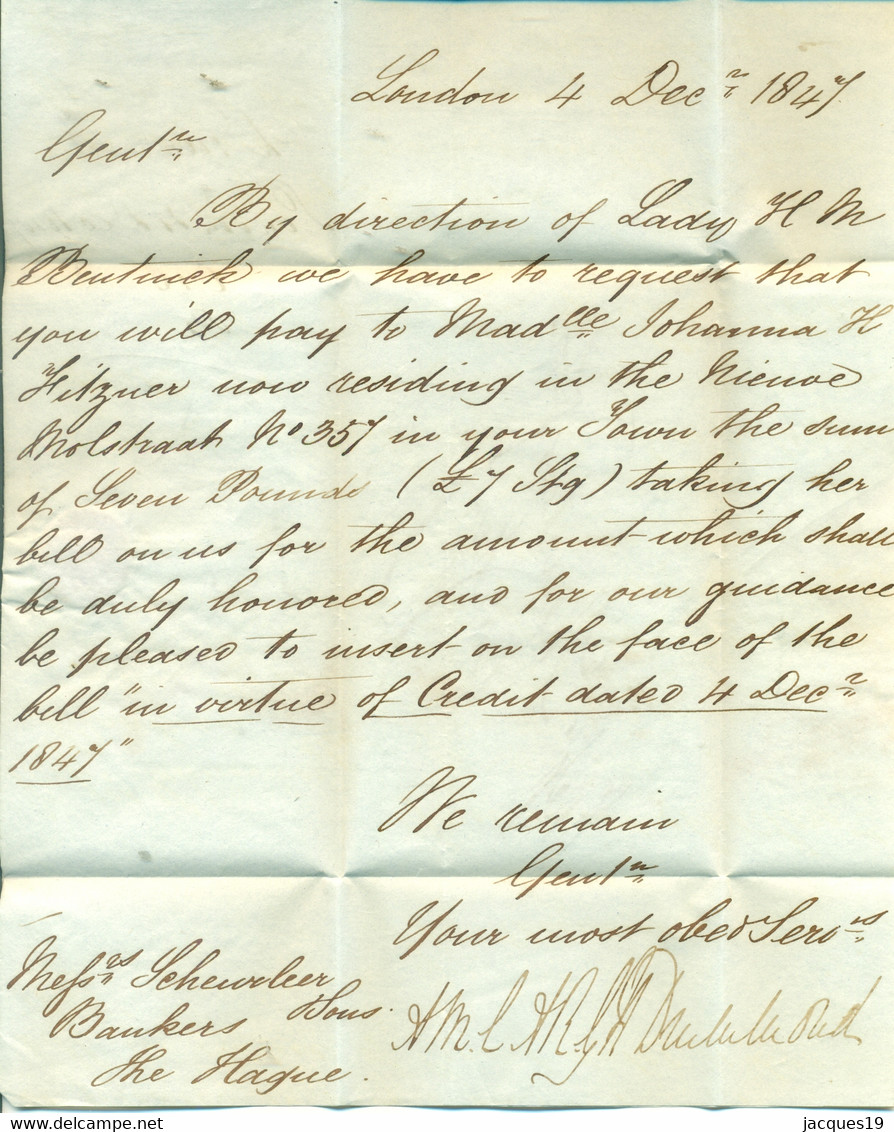 London 4 Decr 1847.
Gentn
By direction of Lady H M
Bentinck we have to request that
you will pay to Madlle Johanna H
Fitzner now residing in the Nieuwe
Molstraat No 357 in your Town the sum
of Seven Pounds (£7 Stg) taking her
bill on us for the amount which shall
be duly honored, and for our guidance
be pleased to insert on the face of the
bill "in virtue of Credit dated 4 Decr
1847"
We remain
Gentn
Your most obed Servts
Messrs Scheurleer
Sons.
Bankers
The Hague.
Drummond
DELCAMPE.NET
jacques19